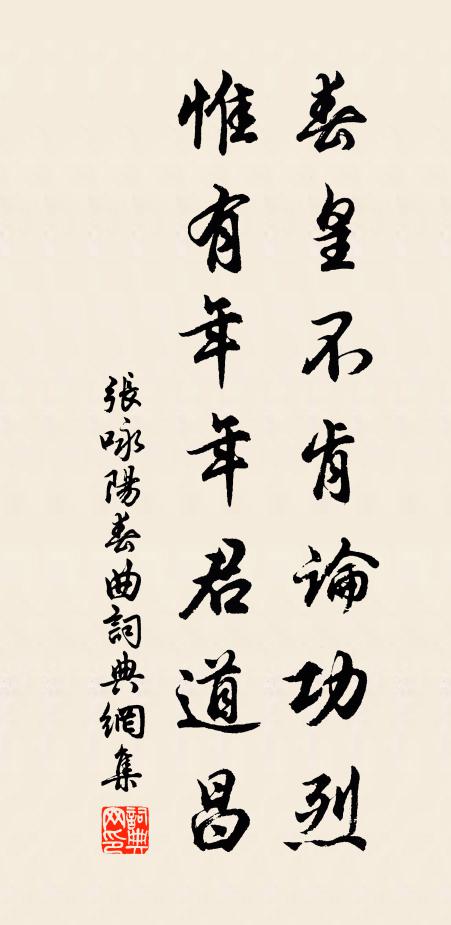 春皇不肯論功烈
惟有年年君道昌
張咏陽春曲詞典網集
詞典网印